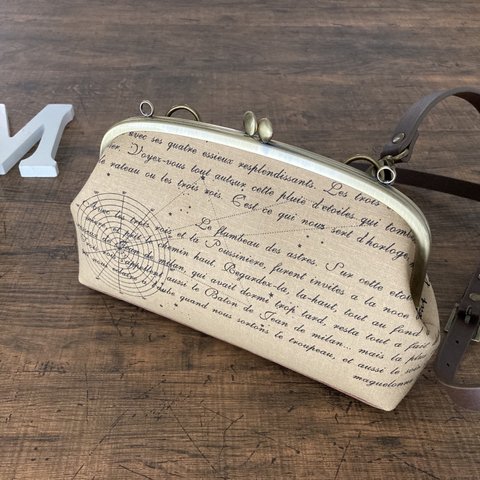 M
avec ses quatre essieux resplendissants. Les trois
er. Voyez-vous tout autour cette pluie d'etoiles qui tomb
rateau ou les trois rois. C'est ce qui nous sert d'horloge,
Le flambeau des astres. Sur cette etoi
Avec les trois rois et la Poussiniere, furent invites a la noce
et prit chemin haut. Regardez-la, la-haut tout au fond
de milan, qui avait dormi trop tard, resta tout a fait
appellent aussi le Baton de Jean de milan... mais la plus
aube quand nous sortons le troupeau, et aussi le soir
maguelonne